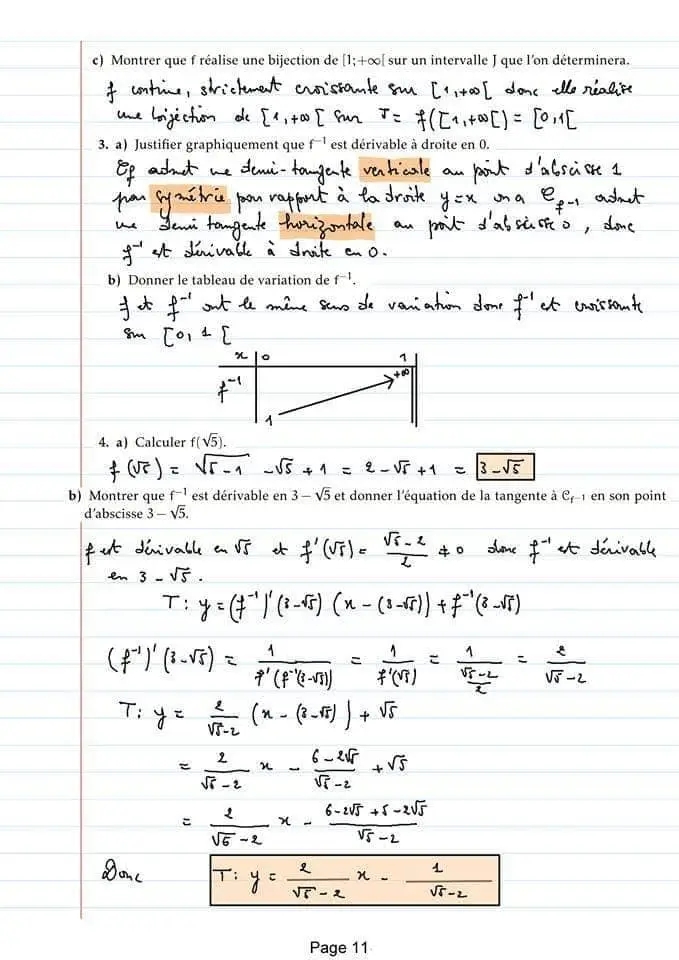 c) Montrer que f réalise une bijection de [1;+∞[ sur un intervalle J que l'on déterminera.
f continue, strictement croissante sur [1,+∞[ donc elle réalise
une bijection de [1,+∞[ sur J = f([1,+∞[) = [0,1[
3. a) Justifier graphiquement que f⁻¹ est dérivable à droite en 0.
𝒞f admet une demi-tangente verticale au point d'abscisse 1
par symétrie par rapport à la droite y=x on a 𝒞f⁻¹ admet
une demi tangente horizontale au point d'abscisse 0, donc
f⁻¹ est dérivable à droite en 0.
b) Donner le tableau de variation de f⁻¹.
f et f⁻¹ ont le même sens de variation donc f⁻¹ est croissante
sur [0,1[
x 0 1
f⁻¹ 1 +∞
4. a) Calculer f(√5).
f(√5) = √(5-1) - √5 + 1 = 2 - √5 + 1 = 3 - √5
b) Montrer que f⁻¹ est dérivable en 3 − √5 et donner l'équation de la tangente à 𝒞f⁻¹ en son point
d'abscisse 3 − √5.
f est dérivable en √5 et f'(√5) = (√5 - 2)/2 ≠ 0 donc f⁻¹ est dérivable
en 3 - √5.
T: y = (f⁻¹)'(3-√5) (x - (3-√5)) + f⁻¹(3-√5)
(f⁻¹)'(3-√5) = 1/(f'(f⁻¹(3-√5))) = 1/(f'(√5)) = 1/((√5-2)/2) = 2/(√5-2)
T: y = 2/(√5-2) (x - (3-√5)) + √5
= 2/(√5-2) x - (6-2√5)/(√5-2) + √5
= 2/(√5-2) x - (6-2√5+5-2√5)/(√5-2)
Donc T: y = 2/(√5-2) x - 1/(√5-2)
Page 11